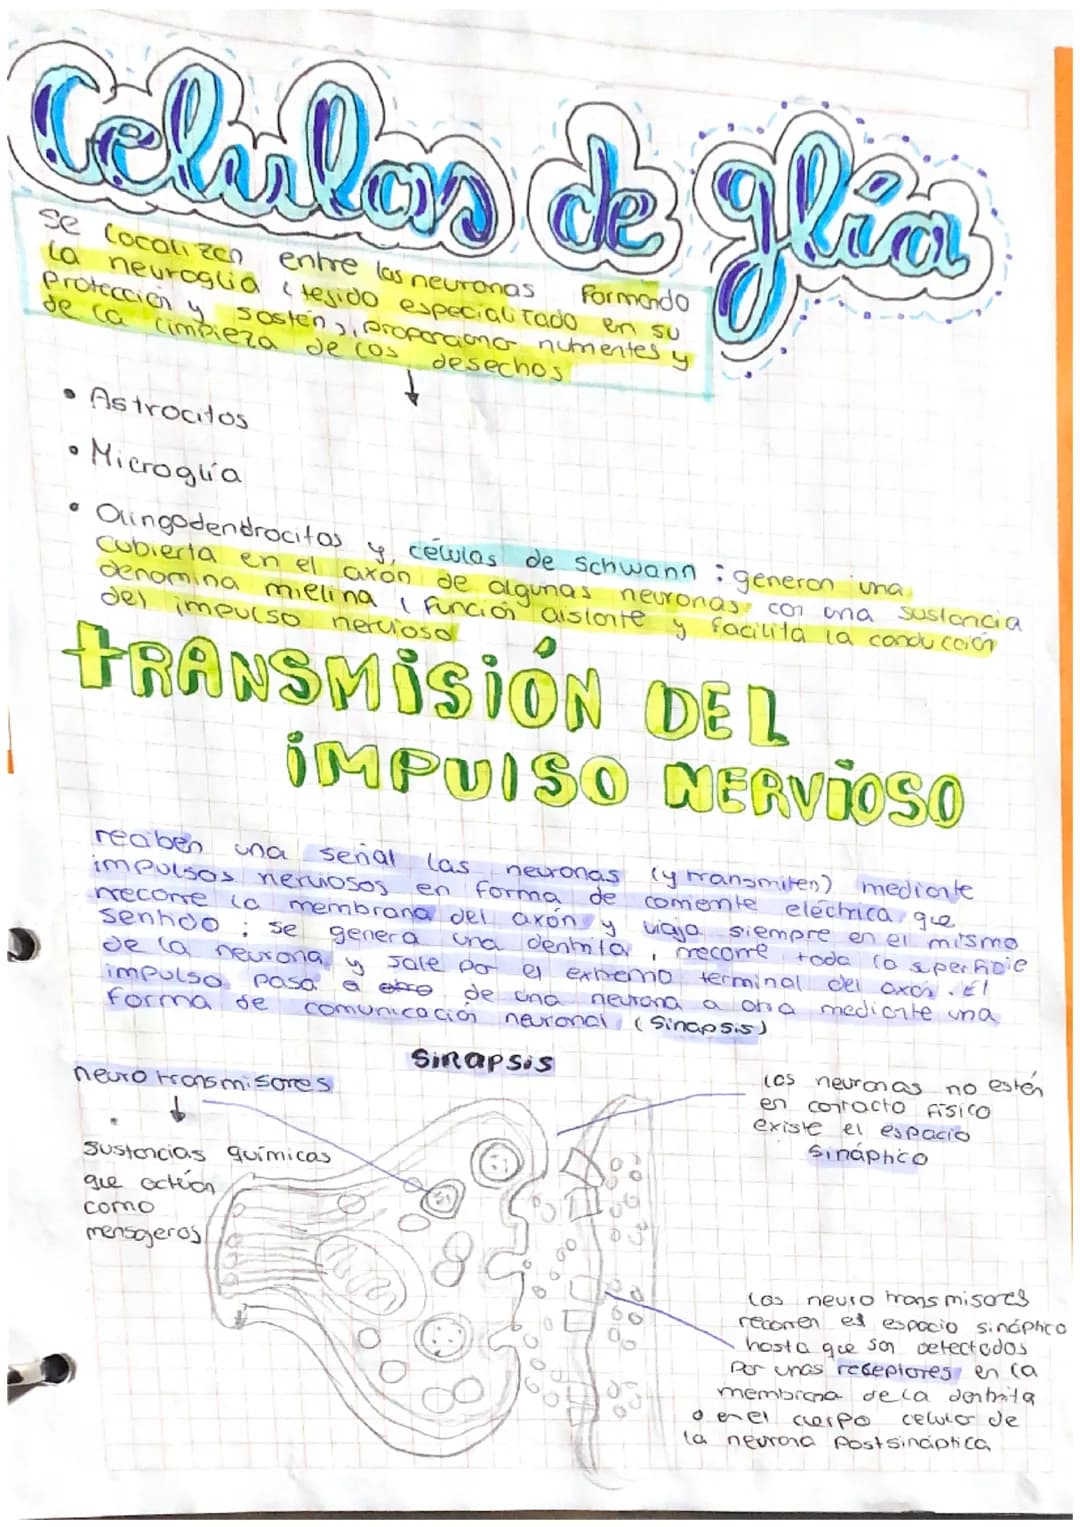 Celulas de glía
se localizan entre las neuronas formando
la neuroglia (tejido especializado en su
protección y sostén), proporcionar nutrientes y
de la limpieza de los desechos
• Astrocitos
• Microglía
• Olingodendrocitos y células de Schwann : generan una
cubierta en el axón de algunas neuronas, con una sustancia
denomina mielina (función aislante y facilita la conducción
del impulso nervioso
tRANSMiSiÓN DEL
iMPUlSO NERViOSO
reciben una señal las neuronas (y transmiten) mediante
impulsos nerviosos en forma de corriente eléctrica que
recorre la membrana del axón y viaja siempre en el mismo
sentido : se genera una dentrita, recorre toda la superficie
de la neurona y sale por el extremo terminal del axón. El
impulso pasa de una neurona a otra mediante una
forma de comunicación neuronal (Sinapsis)
Sinapsis
neurotransmisores
sustancias químicas
que actúan
como
mensajeros
las neuronas no están
en contacto físico
existe el espacio
sináptico
Los neurotransmisores
recorren el espacio sináptico
hasta que son detectados
por unos receptores en la
membrana de la dentrita
o en el cuerpo celular de
la neurona postsináptica